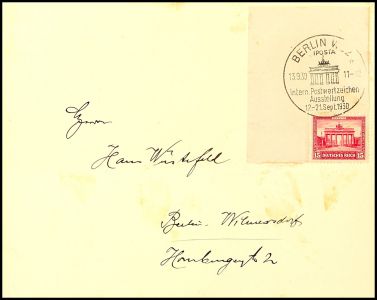 BERLIN W.
IPOSTA
13.9.30 11-12
Intern. Postwertzeichen
Ausstellung
12.-21. Sept. 1930
15 DEUTSCHES REICH 15
Herrn
Hans Wüstefeld
Berlin-Wilmersdorf